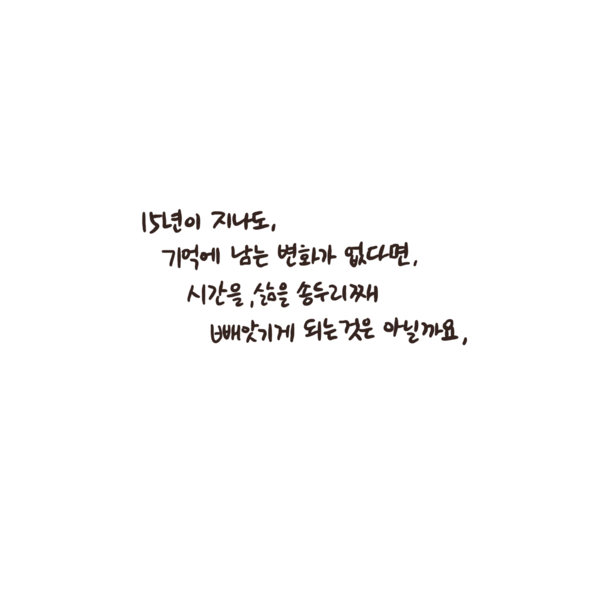 15년이 지나도,
기억에 남는 변화가 없다면,
시간을, 삶을 송두리째
빼앗기게 되는것은 아닐까요,